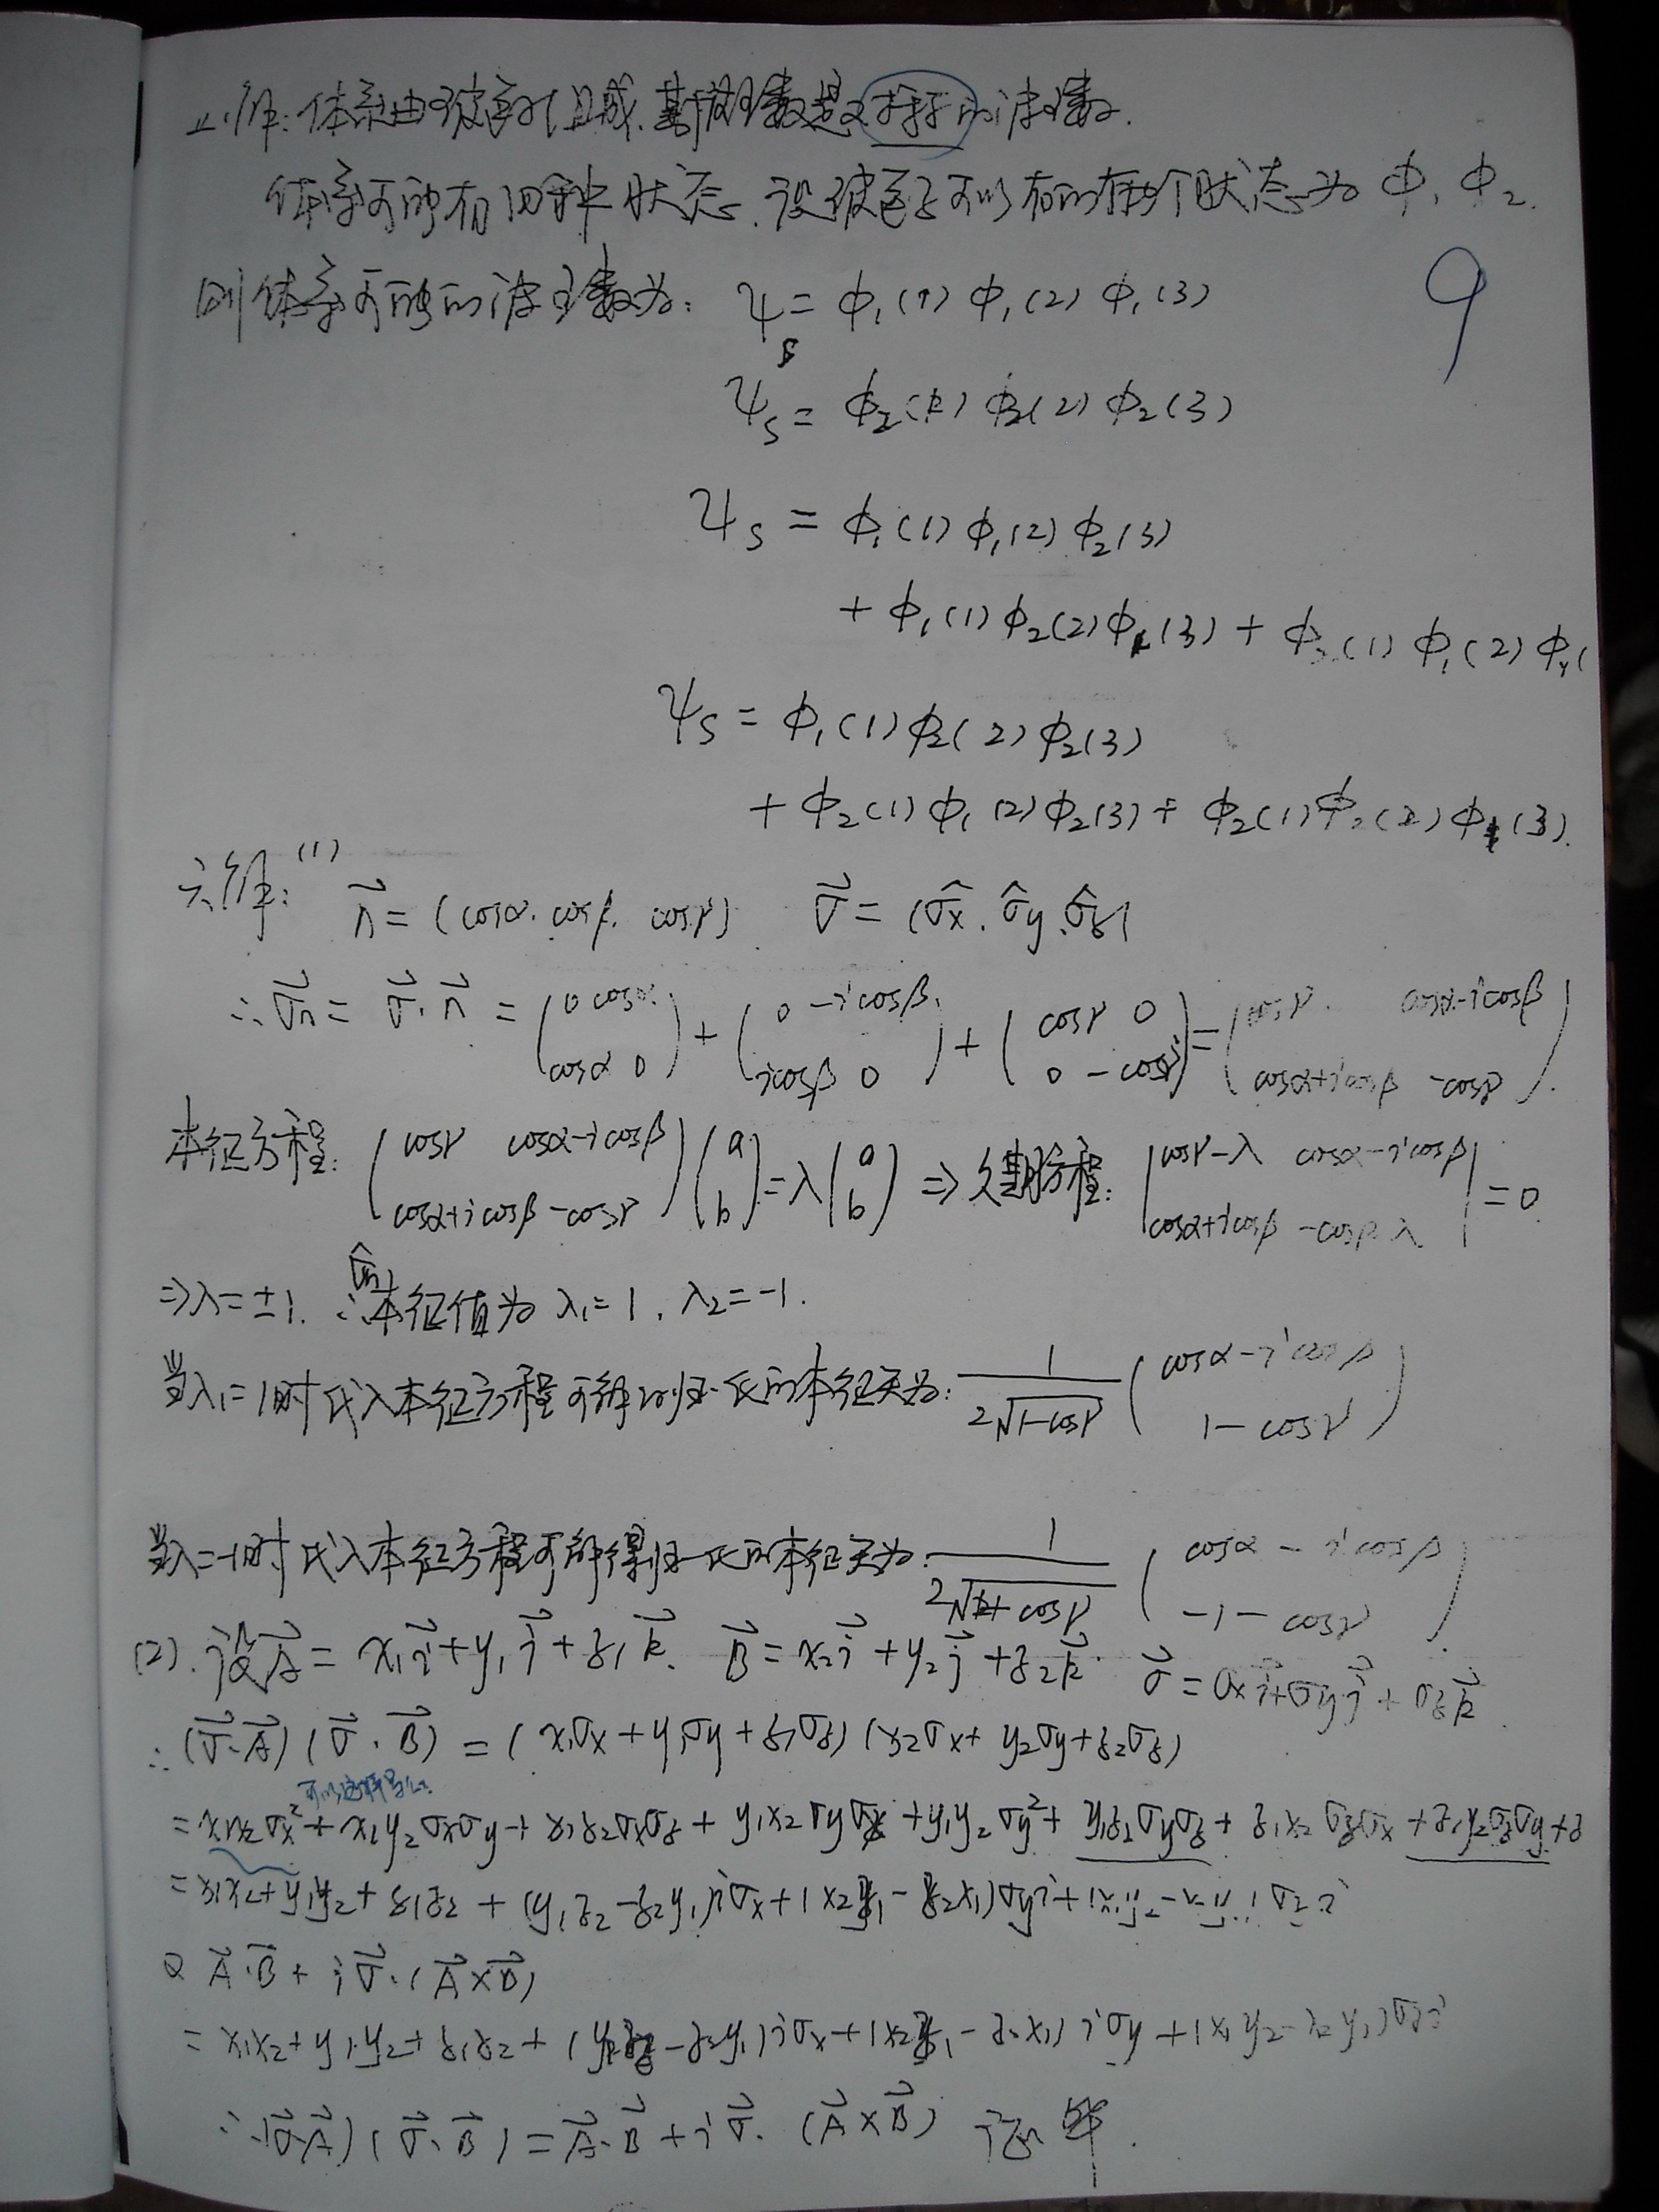 五.解:体系由玻色子组成.其波函数是对称的波函数.
体系可能有四种状态.设玻色子可以有的两个状态为 φ₁ φ₂.
9
则体系可能的波函数为: ψ_s = φ₁(1) φ₁(2) φ₁(3)
ψ_s = φ₂(1) φ₂(2) φ₂(3)
ψ_s = φ₁(1) φ₁(2) φ₂(3)
+ φ₁(1) φ₂(2) φ₁(3) + φ₂(1) φ₁(2) φ₁(
ψ_s = φ₁(1) φ₂(2) φ₂(3)
+ φ₂(1) φ₁(2) φ₂(3) + φ₂(1) φ₂(2) φ₁(3).
六.解: (1) n⃗ = (cosα. cosβ. cosγ) σ⃗ = (σ̂x. σ̂y. σ̂z)
∴ σ⃗n = σ⃗·n⃗ = (0 cosα; cosα 0) + (0 -icosβ; icosβ 0) + (cosγ 0; 0 -cosγ) = (cosγ cosα-icosβ; cosα+icosβ -cosγ).
本征方程: (cosγ cosα-icosβ; cosα+icosβ -cosγ)(a; b) = λ(a; b) ⇒ 久期方程: |cosγ-λ cosα-icosβ; cosα+icosβ -cosγ-λ| = 0
⇒ λ=±1. ∴ σ̂n 本征值为 λ₁=1, λ₂=-1.
当λ₁=1时代入本征方程可解得归一化的本征矢为: 1/(2√(1-cosγ)) (cosα-icosβ; 1-cosγ)
当λ=-1时代入本征方程可解得归一化的本征矢为: 1/(2√(1+cosγ)) (cosα-icosβ; -1-cosγ)
(2). 设A⃗ = x₁i⃗+y₁j⃗+z₁k⃗. B⃗ = x₂i⃗+y₂j⃗+z₂k⃗. σ⃗ = σxi⃗+σyj⃗+σzk⃗.
∴ (σ⃗·A⃗)(σ⃗·B⃗) = (x₁σx+y₁σy+z₁σz)(x₂σx+y₂σy+z₂σz)
= x₁x₂σx²+x₁y₂σxσy+x₁z₂σxσz+y₁x₂σyσx+y₁y₂σy²+y₁z₂σyσz+z₁x₂σzσx+z₁y₂σzσy+z
= x₁x₂+y₁y₂+z₁z₂+(y₁z₂-z₂y₁)iσx+(x₂z₁-z₂x₁)σyi+(x₁y₂-x₂y₁)σzi
又 A⃗·B⃗+iσ⃗·(A⃗×B⃗)
= x₁x₂+y₁y₂+z₁z₂+(y₁z₂-z₂y₁)iσx+(x₂z₁-z₂x₁)iσy+(x₁y₂-x₂y₁)σzi
∴ (σ⃗·A⃗)(σ⃗·B⃗) = A⃗·B⃗+iσ⃗·(A⃗×B⃗) 证毕.